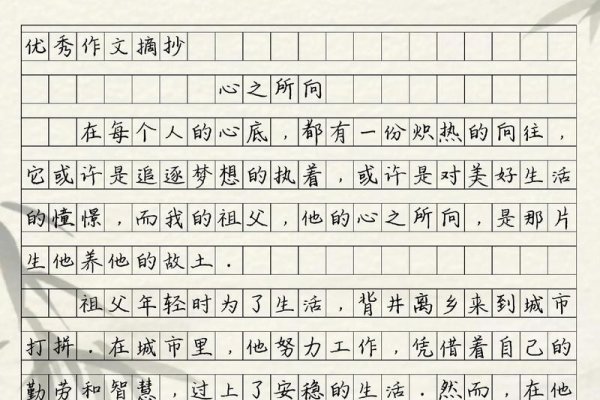 优秀作文摘抄
心之所向
在每个人的心底，都有一份炽热的向往，
它或许是追逐梦想的执着，或许是对美好生活
的憧憬，而我的祖父，他的心之所向，是那片
生他养他的故土.
祖父年轻时为了生活，背井离乡来到城市
打拼.在城市里，他努力工作，凭借着自己的
勤劳和智慧，过上了安稳的生活.然而，在他